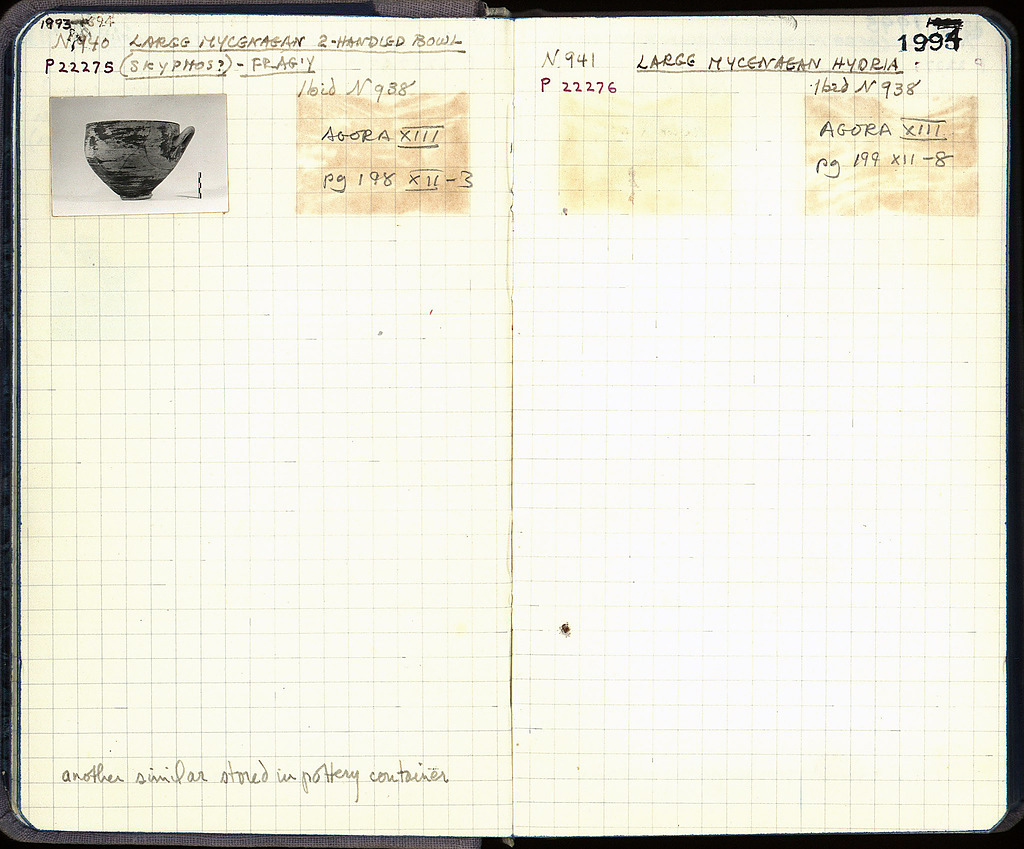 1993
N 940 LARGE MYCENAEAN 2-HANDLED BOWL
P 22275 (SKYPHOS?) - FRAG'Y
Ibid N 938
AGORA XIII
pg 198 XII - 3
another similar stored in pottery container
1994
N 941 LARGE MYCENAEAN HYDRIA
P 22276
Ibid N 938
AGORA XIII
pg 199 XII - 8